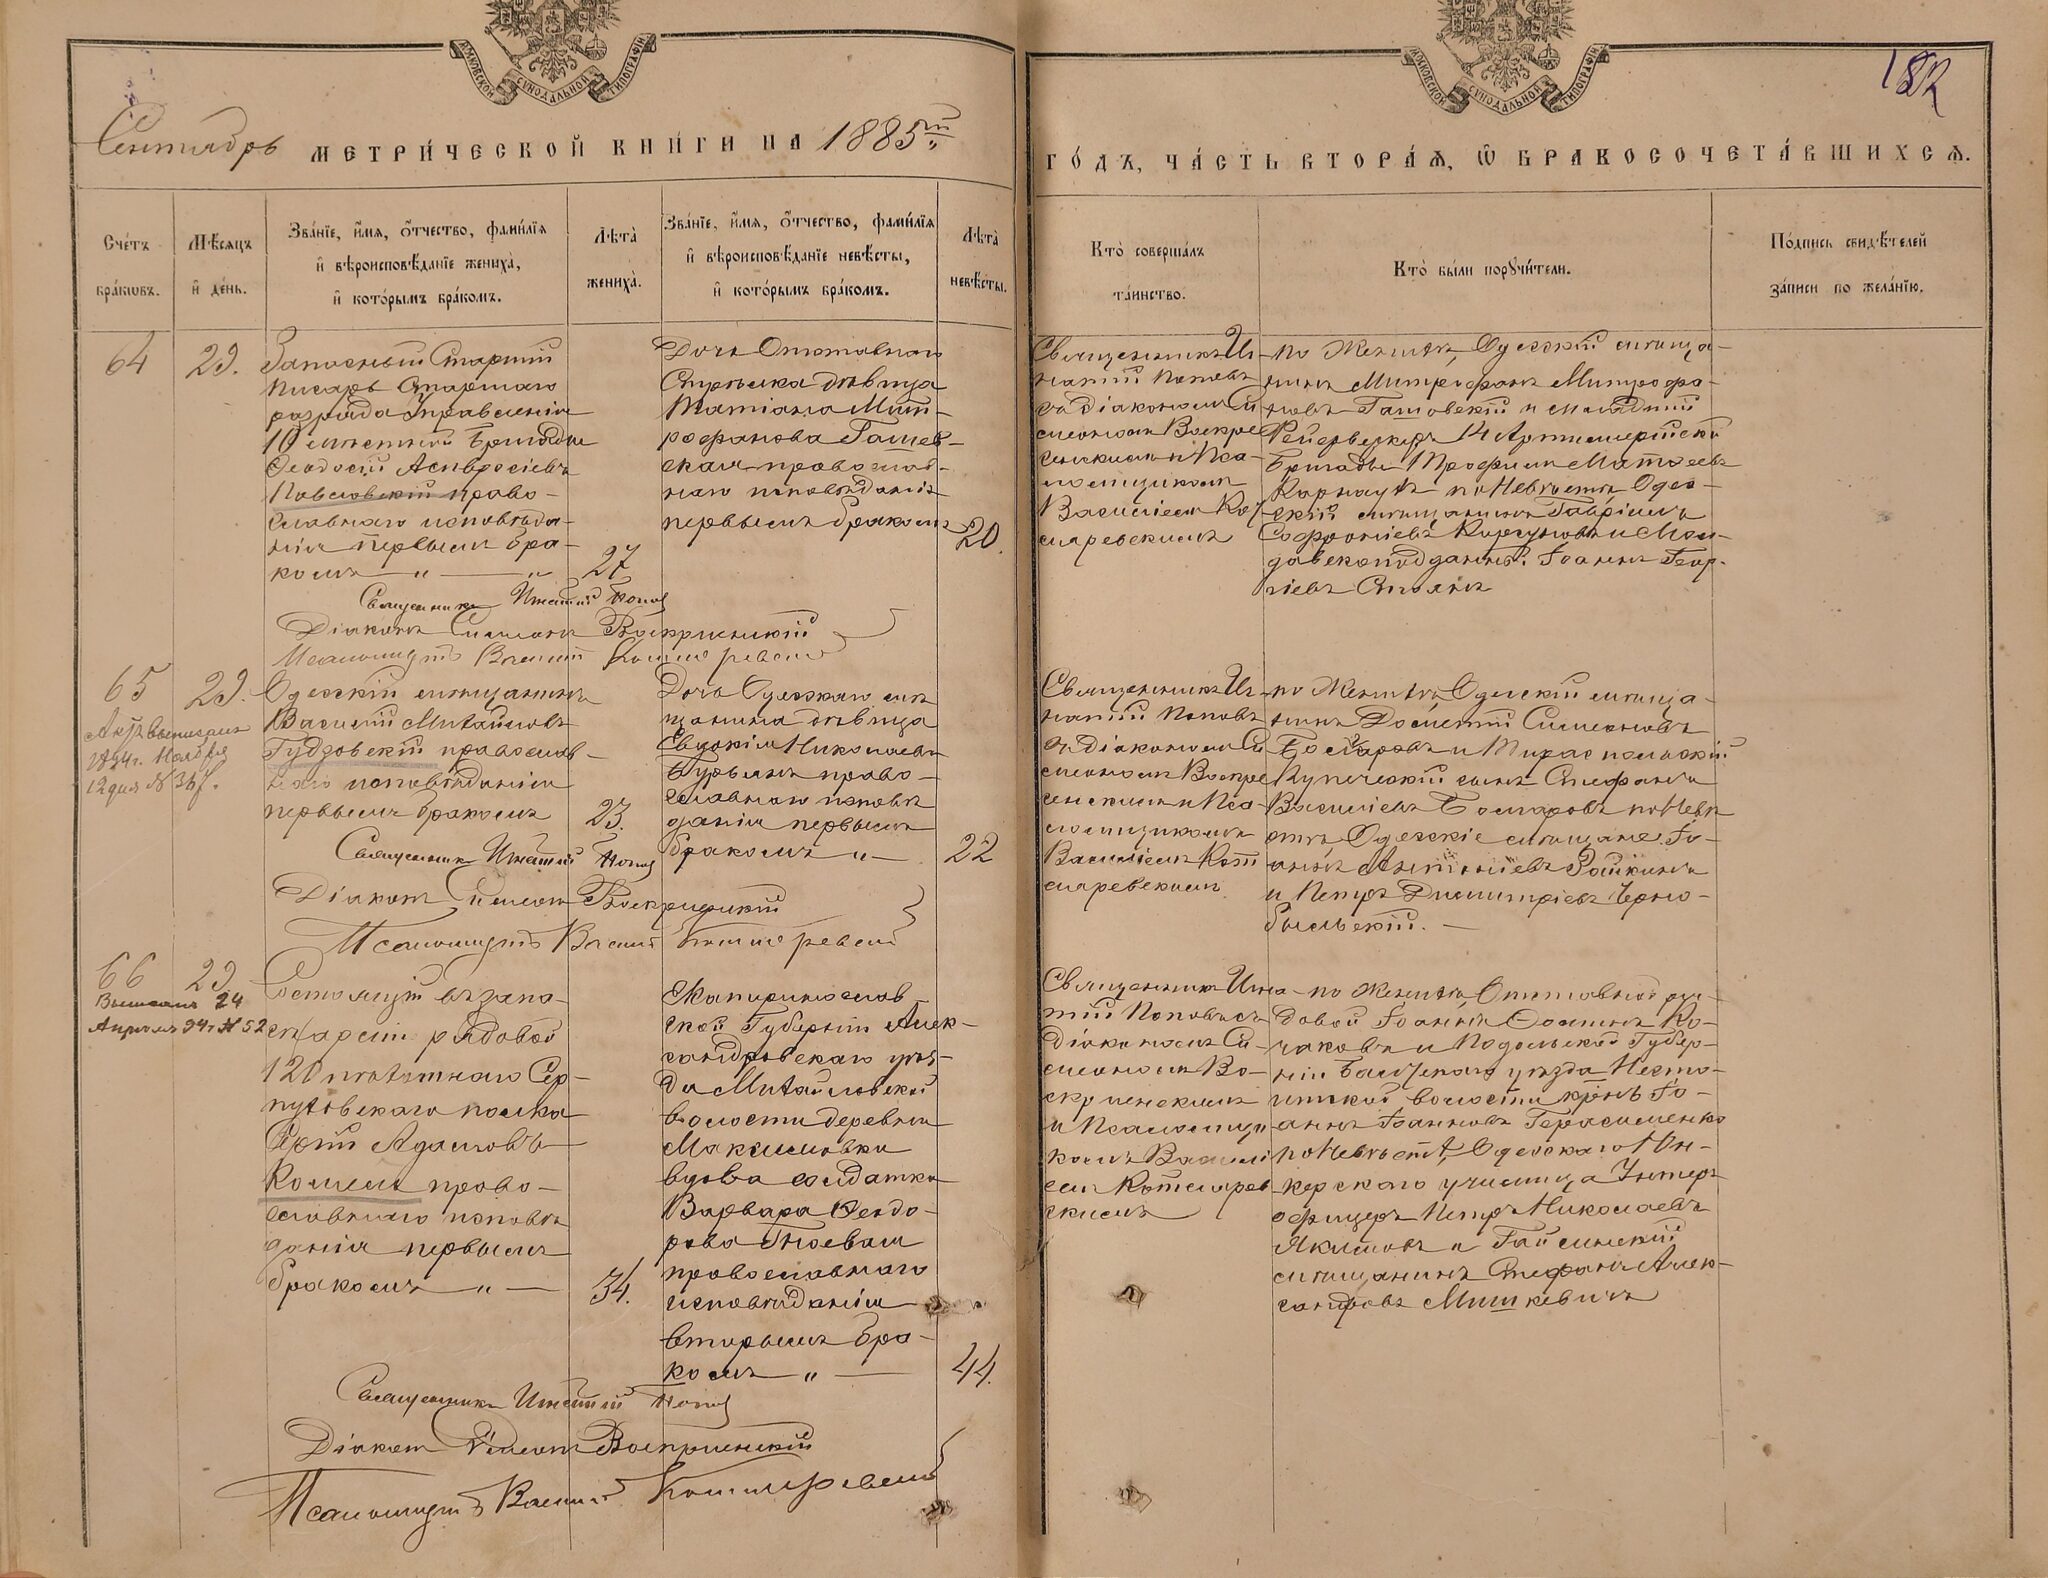 МОСКОВСКОЙ СѴНОДАЛЬНОЙ ТИПОГРАФІИ
МОСКОВСКОЙ СѴНОДАЛЬНОЙ ТИПОГРАФІИ
182
Сентябрь МЕТРИ́ЧЕСКОЙ КНИ́ГИ НА 1885й
ГО́ДЪ, ЧА́СТЬ ВТОРА́Я, Ѡ БРАКОСОЧЕТА́ВШИХСЯ.
Сче́тъ
бра́ковъ.
Мѣ́сяцъ
и҆ де́нь.
Зва́нїе, и҆́мя, ѻ҆́тчество, фами́лїя
и҆ вѣроисповѣ́данїе жениха̀,
и҆ кото́рымъ бра́комъ.
Лѣ́та̀
жениха̀.
Зва́нїе, и҆́мя, ѻ҆́тчество, фами́лїя
и҆ вѣроисповѣ́данїе невѣ́сты,
и҆ кото́рымъ бра́комъ.
Лѣ́та̀
невѣ́сты.
Кто̀ соверша́лъ
та́инство.
Кто̀ бы́ли порꙋчи́тели.
По́дпись свидѣ́телей
за́писи по жела́нїю.
64
29.
Запасный Старшій
писарь Старшаго
разряда Управленія
10 мѣстной Бригады
Ѳеодосій Амвросіевъ
Павловскій право-
славнаго исповѣда-
нія первымъ бра-
комъ — " — "
27
Дочь Отставнаго
Стрѣлка дѣвица
Татіана Мит-
рофанова
православ-
наго исповѣданія
первымъ бракомъ
20.
Священникъ Иг-
натій Поповъ
съ діакономъ Си
меономъ Воскре
сенскимъ и Пса-
ломщикомъ
Василіемъ Кот
ляревскимъ
по Женихѣ, Одесскій мѣща-
нинъ Митрофанъ Митрофа-
новъ и младшій
Фейерверкеръ 14 Артиллерійской
Бригады Трофимъ Матѳеевъ
по Невѣстѣ Одес-
скій мѣщанинъ Гавріилъ
Софроніевъ и Мол-
Іоаннъ Геор-
гіевъ Стоянъ
Священникъ Игнатій Поповъ
Діаконъ Симеонъ Воскресенскій
Псаломщикъ Василій Котляревскій
65
29.
Одесскій мѣщанинъ
Василій Михайловъ
Гудзовскій православ-
наго исповѣданія
первымъ бракомъ
23.
Дочь Одесскаго мѣ
щанина дѣвица
Евдокія Николаева
право-
славнаго исповѣ
данія первымъ
бракомъ " —
22
Священникъ Иг-
натій Поповъ
съ діакономъ Си
меономъ Воскре
сенскимъ и Пса-
ломщикомъ
Василіемъ Кот
ляревскимъ
по Женихѣ, Одесскій мѣща-
нинъ Симеоновъ
и Тираспольскій
Купеческій сынъ Стефанъ
Василіевъ по Невѣ
стѣ Одесскіе мѣщане Іо-
аннъ Антоніевъ
и Петръ Димитріевъ Черно-
быльскій. —
Священникъ Игнатій Поповъ
Діаконъ Симеонъ Воскресенскій
Псаломщикъ Василій Котляревскій
66
29.
24
Апрѣля 94 г. № 52
Состоящій въ запа-
сѣ арміи рядовой
121 пѣхотнаго Сер-
пуховскаго полка
Адамовъ
право-
славнаго исповѣ
данія первымъ
бракомъ " —
34.
Екатеринослав-
ской Губерніи Алек-
сандровскаго уѣз-
да Михайловской
волости деревни
Максимовки
вдова солдатка
Варвара Ѳеодо-
рова
православнаго
исповѣданія
вторымъ бра-
комъ " —
44.
Священникъ Игна-
тій Поповъ съ
діакономъ Си-
меономъ Во-
скресенскимъ
и Псаломщи
комъ Василі
емъ Котлярев
скимъ
по Женихѣ, Отставной ря-
довой Іоаннъ Ѳоминъ
и Подольской Губер-
ніи Балтскаго уѣзда
волости Іо-
аннъ Іоанновъ Герасименко
по Невѣстѣ, Одесскаго Юн-
керскаго училища Унтеръ
офицеръ Петръ Николаевъ
Якимовъ и Гайсинскій
мѣщанинъ Стефанъ Алек-
сандровъ Мишкевичъ
Священникъ Игнатій Поповъ
Діаконъ Симеонъ Воскресенскій
Псаломщикъ Василій Котляревскій